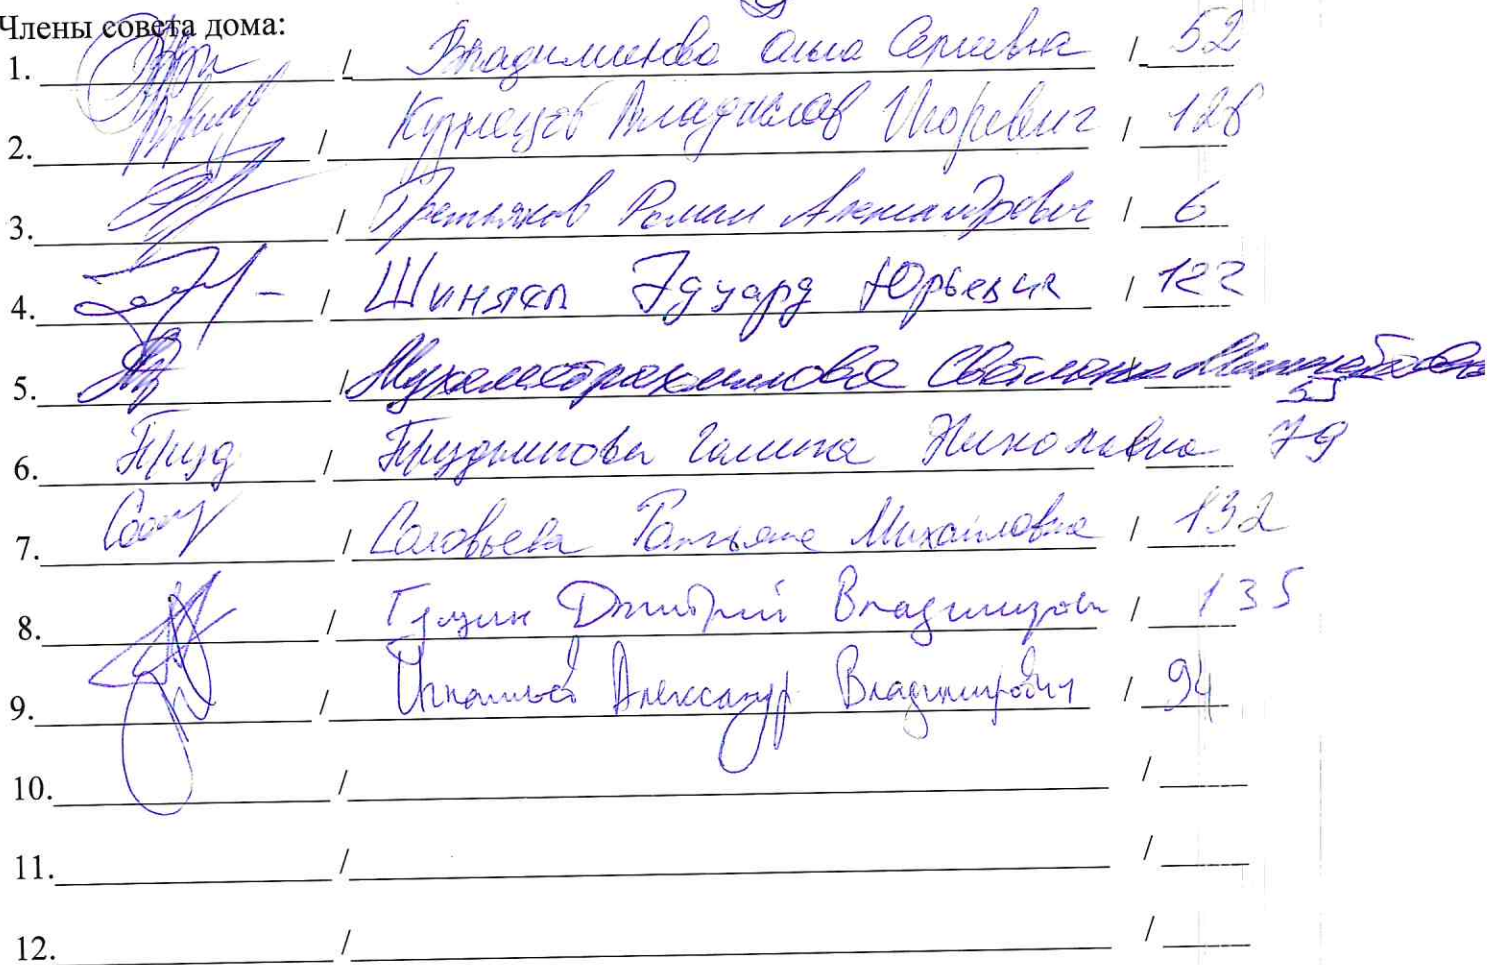 Члены совета дома:
1. / Ольга Сергеевна / 52
2. / Кузнецов Владислав Игоревич / 126
3. / Третьяков Роман Александрович / 6
4. / Эдуард Юрьевич / 122
5. / Мухаметрахимова Светлана
55
6. Пруд / Прудникова Галина Николаевна 79
7. / Соловьева Татьяна Михайловна / 132
8. / Дмитрий Владимирович / 135
9. / Игнатьев Александр Владимирович / 94
10. / /
11. / /
12. / /